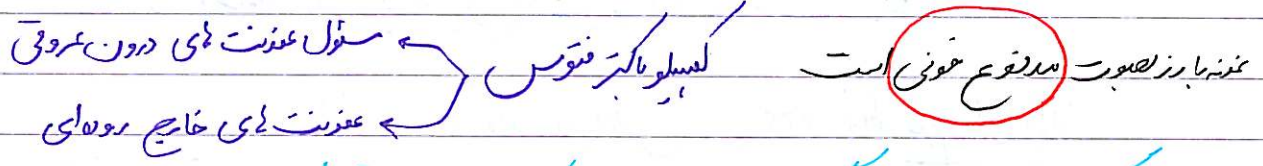 نمونه بارز بصورت مدفوع خونی است کمپیلوباکتر فتوس
مسئول عفونت های درون عروقی
عفونت های خارج روده ای